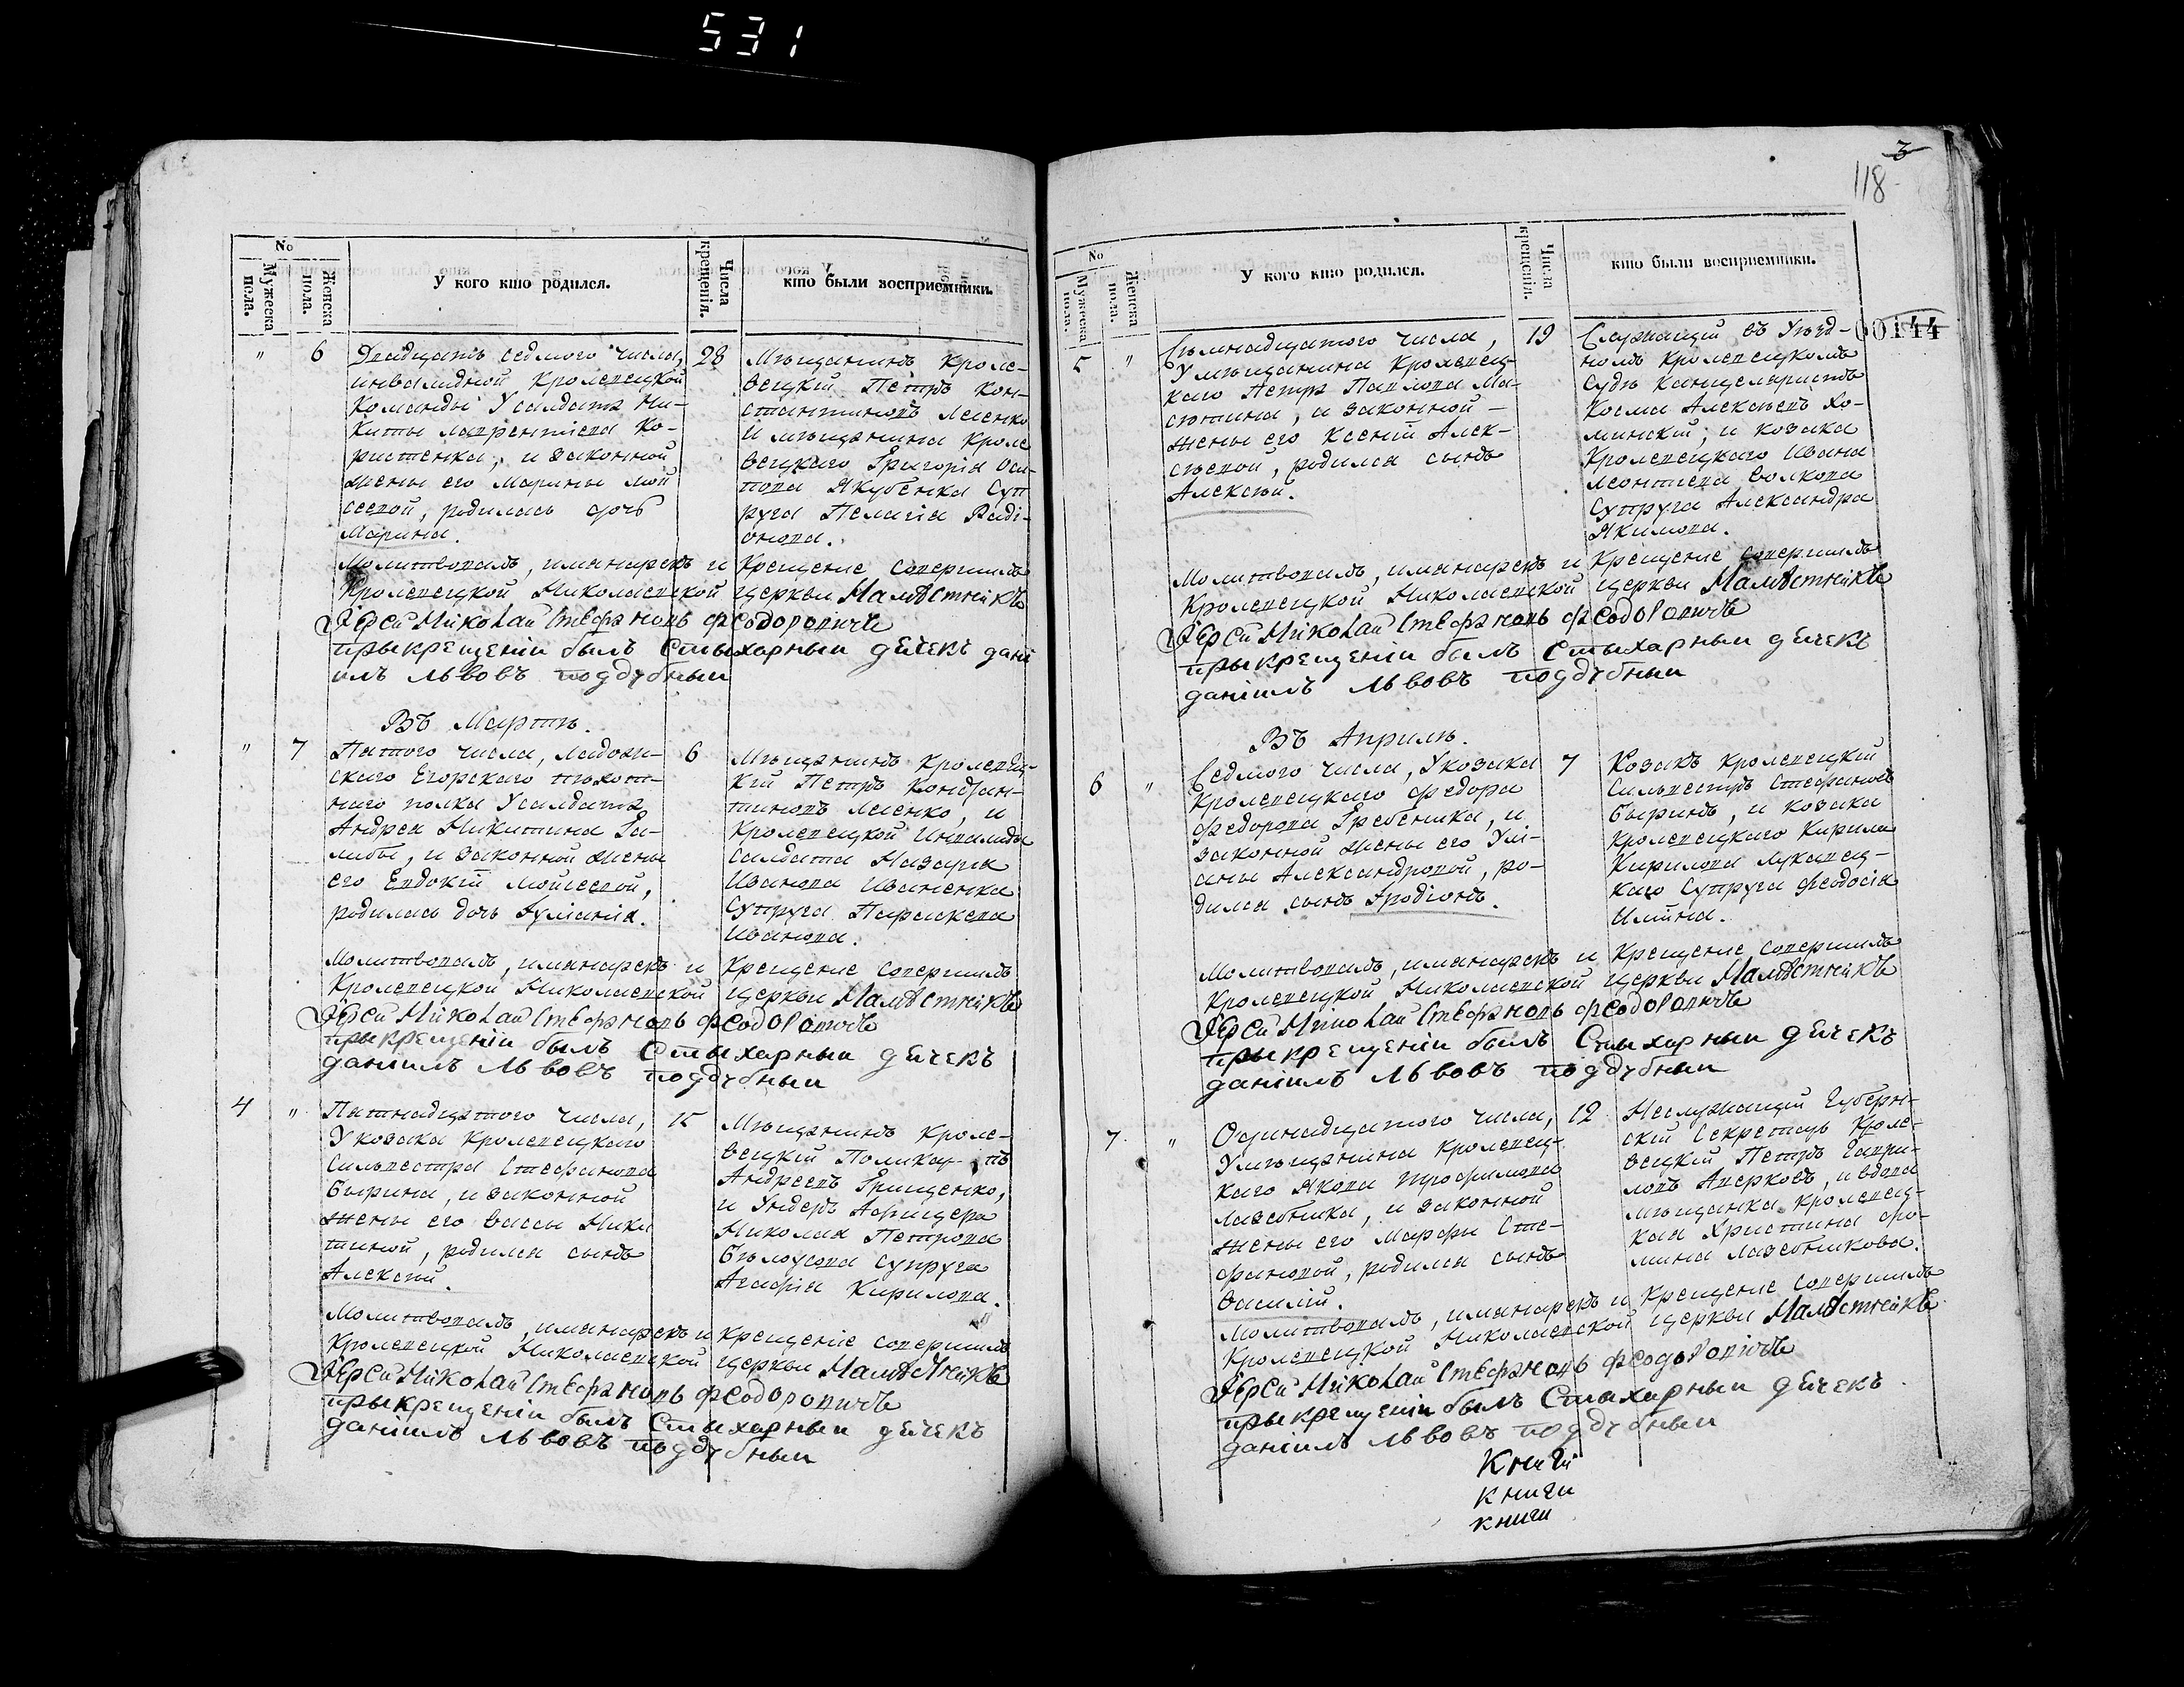 531
No
Мужеска пола.
Женска пола.
У кого кто родился.
Числа крещенія.
кто были восприемники.
" 6
Двадцать седмого числа,
инвалидной Кролевецкой
Команды У салдата Ни-
киты Лаврентіева Ко-
ристенка, и законной
жены его Марины Мой
сеевой, родилась дочь
Марина.
28
Мѣщанинъ Кроле-
вецкій Петръ Кон-
стантиновъ Лсенко
и мѣщанина Кроле
вецкаго Григорія Оси-
пова Якубенка Суп
руга Пелагія Раді-
онова.
Молитвовалъ, имянарекъ и Крещеніе совершилъ
Кролевецкой Николаевской Церкви Намѣстникъ
Іерей Николай Стефановъ Феодоровичъ
прыкрещеніи былъ Стыхарный дячекъ дані
илъ Львовъ поддубный
Въ Мартѣ.
" 7
Пятого числа, Ладож-
скаго Егорскаго пѣхот-
наго полка У салдата
Андрея Никитина Га-
либы, и законной жены
его Евдокіи Мойсеевой,
родилась дочь Іуліанія.
6
Мѣщанинъ Кролевец-
кій Петръ Констан-
тиновъ Лсенко, и
Кролевецкой Инвалиды
Салдата Назарія
Иванова Иваненка
Супруга Параскева
Иванова.
Молитвовалъ, имянарекъ и Крещеніе совершилъ
Кролевецкой Николаевской Церкви Намѣстникъ
Іерей Николай Стефановъ Феодоровичъ
прыкрещеніи былъ Стыхарный дячекъ
даніилъ Львовъ поддубный
4 "
Пятнадцятого числа,
У козака Кролевецкаго
Сильвестра Стефанова
Бырина, и законной
жены его Вассы Ники
тиной, родился сынъ
Алексѣй.
15
Мѣщанинъ Кроле-
вецкій Поликар пъ
Андреевъ Грищенко,
и Ундеръ Афицера
Николая Петрова
Бѣлоусова супруга
Агафія Кирилова.
Молитвовалъ, имянарекъ и Крещеніе совершилъ
Кролевецкой Николаевской Церкви Намѣстникъ
Іерей Николай Стефановъ Феодоровичъ
прыкрещеніи былъ Стыхарный дячекъ
даніилъ Львовъ поддубный
3
118
00144
No
Мужеска пола.
Женска пола.
У кого кто родился.
Числа крещенія.
кто были восприемники.
5 "
Семнадцатого числа,
У мѣщанина Кролевец-
каго Петра Павлова Ма-
сютина, и законной -
жены его Ксеніи Алек-
сѣевой, родился сынъ
Алексѣй.
19
Служащій въ Уѣзд-
номъ Кролевецкомъ
Судѣ Канцеляристъ
Косма Алексѣевъ Хо-
минскій; и козака
Кролевецкаго Ивана
Леонтиева Волкова
Супруга Александра
Якимова.
Молитвовалъ, имянарекъ и Крещеніе совершилъ
Кролевецкой Николаевской Церкви Намѣстникъ
Іерей Николай Стефановъ Феодоровичъ
прыкрещеніи былъ Стыхарный дячекъ
даніилъ Львовъ поддубный
Въ Априлѣ.
6 "
Седмого числа, У козака
Кролевецкаго Федора
Федорова Гребеника, и
законной жены его Улі-
аны Александровой, ро-
дился сынъ Іродіонъ.
7
Козакъ Кролевецкій
Сильвестръ Стефановъ
Быринъ, и козака
Кролевецкаго Кирила
Кирилова Лукавец-
каго Супруга Феодосія
Ильина.
Молитвовалъ, имянарекъ и Крещеніе совершилъ
Кролевецкой Николаевской Церкви Намѣстникъ
Іерей Николай Стефановъ Феодоровичъ
прыкрещеніи былъ Стыхарный дячекъ
даніилъ Львовъ поддубный
7 "
Одинадцатого числа,
У мѣщанина Кролевец-
каго Якова Трофимова
Лазебника, и законной
жены его Марфы Сте-
фановой, родился сынъ
Василій.
12
Неслужащій Губерн-
скій Секретаръ Кроле-
вецкій Петръ Гаври-
ловъ Аверковъ, и вдова
мѣщанка Кролевец-
кая Христина Фо-
мина Лазебникова.
Молитвовалъ, имянарекъ и Крещеніе совершилъ
Кролевецкой Николаевской Церкви Намѣстникъ
Іерей Николай Стефановъ Феодоровичъ
прыкрещеніи былъ Стыхарный дячекъ
даніилъ Львовъ поддубный
Книги
книги
книги